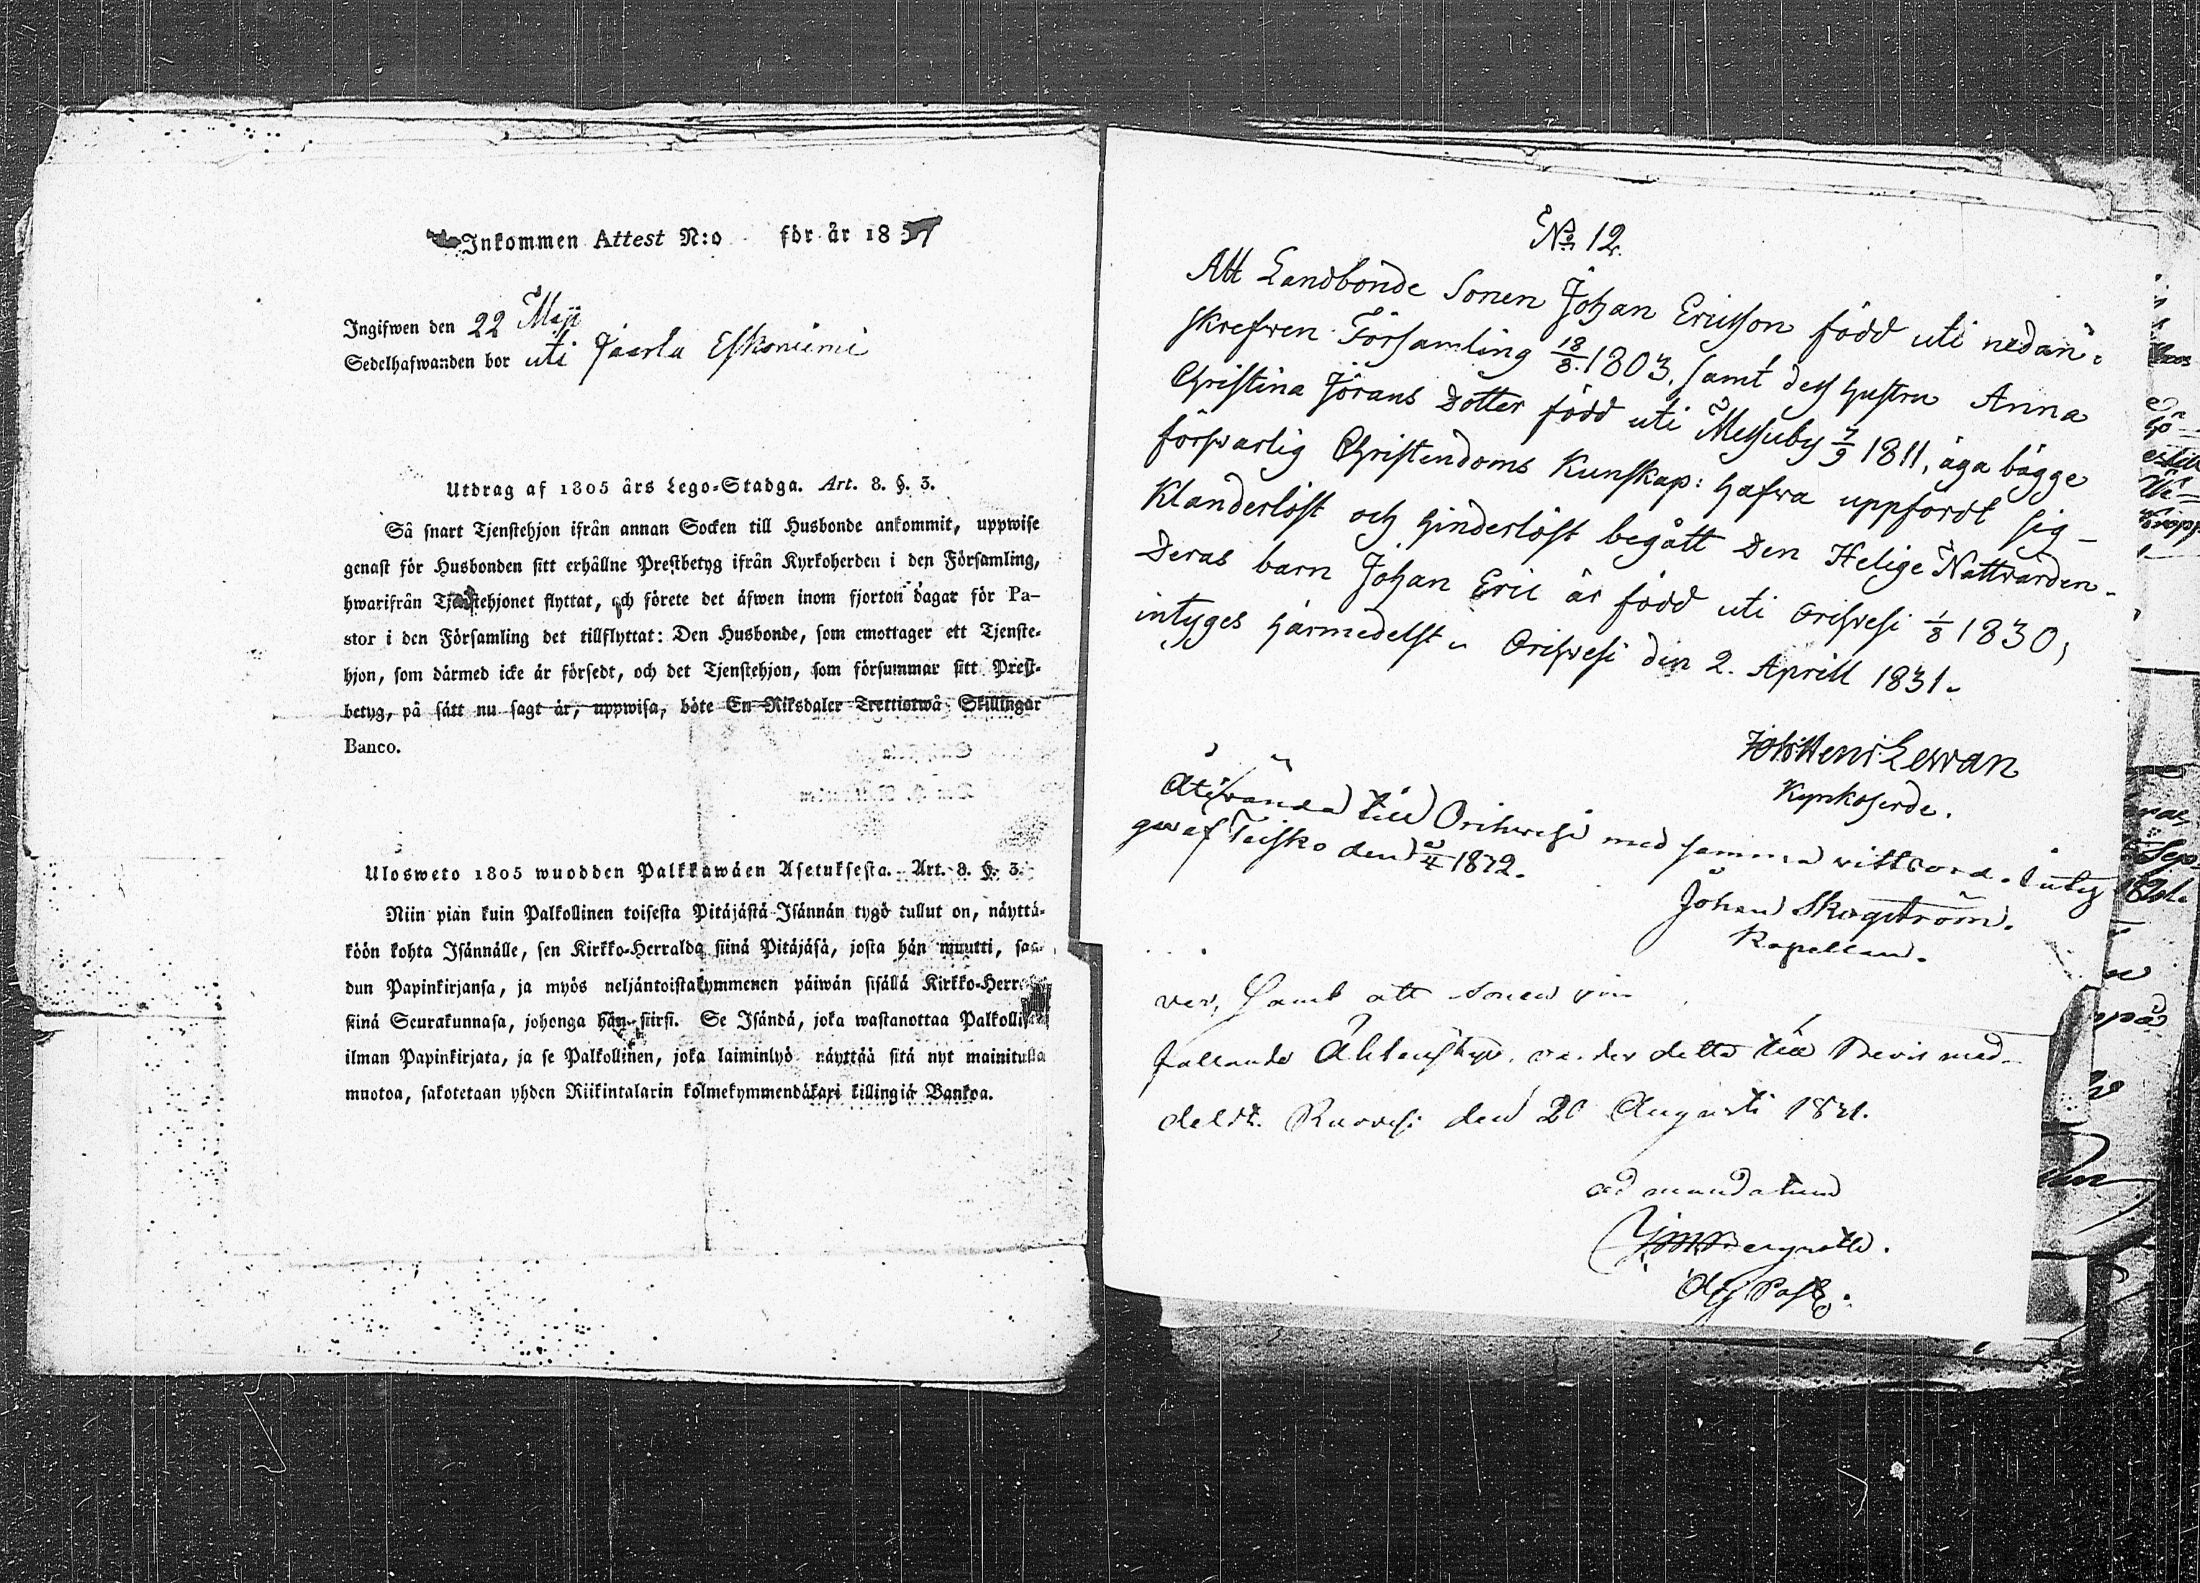 Inkommen Attest N:o för år 18
Ingifwen den 22 Maji
Sedelhafwanden bor uti Jaarla Eskoniemi
Utdrag af 1805 års Lego-Stadga. Art. 8. §. 3.
Så snart Tjenstehjon ifrån annan Socken till Husbonde ankommit, uppwise
genast för Husbonden sitt erhållne Prestbetyg ifrån Kyrkoherden i den Församling,
hwarifrån Tjenstehjonet flyttat, och förete det äfwen inom fjorton dagar för Pa-
stor i den Församling det tillflyttat: Den Husbonde, som emottager ett Tjenste-
hjon, som därmed icke är försedt, och det Tjenstehjon, som försummar sitt Prest-
betyg, på sätt nu sagt är, uppwisa, böte En Riksdaler Trettiotwå Skillingar
Banco.
Ulosweto 1805 wuodden Palkkawäen Asetuksesta. Art. 8. §. 3.
Niin pian kuin Palkollinen toisesta Pitäjästä Isännän tygö tullut on, näyttä-
köön kohta Isännälle, sen Kirkko-Herralda siinä Pitäjäsä, josta hän muutti, saa-
dun Papinkirjansa, ja myös neljäntoistakymmenen päiwän sisällä Kirkko-Herralle
siinä Seurakunnasa, johonga hän siirsi. Se Isändä, joka wastanottaa Palkollisen
ilman Papinkirjata, ja se Palkollinen, joka laiminlyö näyttää sitä nyt mainitulla
muotoa, sakotetaan yhden Riikintalarin kolmekymmendäkaxi killingiä Bankoa.
No 12.
Att Landbonde Sonen Johan Ericsson född uti nedan-
skrefwen Församling 18/8. 1803, samt dess Hustru Anna
Christina Jörans Dotter född uti Messuby 7/9 1811, äga bägge
förswarlig Christendoms Kunskap: hafwa uppfördt sig
Klanderlöst och hinderlöst begått Den Helige Nattvarden.
Deras barn Johan Eric är född uti Orihvesi 1/8 1830,
intyges härmedelst. Orihvesi den 2. Aprill 1831.
Henr: Lewan
Kyrkoherde.
Återvända till Orihwesi med samma vittsord. Intyg
gas af Teisko den 2/4 1872.
Johan Skogström.
Kapellan.
ver, Samt att Sonen
fallande detta till Bevis med-
deldt. Ruovesi den 20 Augusti 1831.
ad mandatum